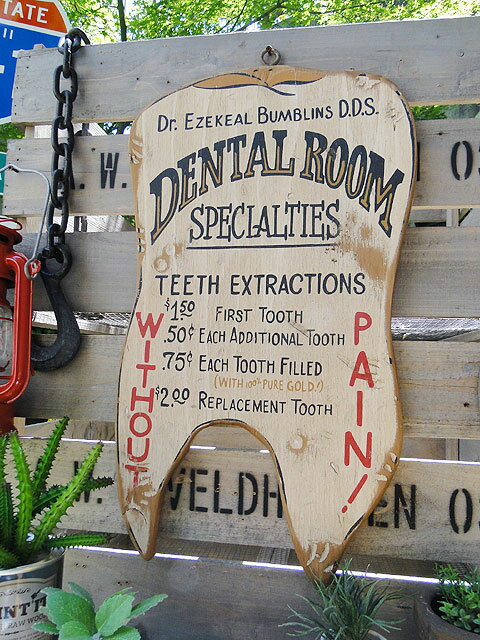 TATE
Dr. Ezekeal Bumblins D.D.S.
DENTAL ROOM
SPECIALTIES
TEETH EXTRACTIONS
$1.50 FIRST TOOTH
.50¢ EACH ADDITIONAL TOOTH
.75¢ EACH TOOTH FILLED
(WITH 100% PURE GOLD!)
$2.00 REPLACEMENT TOOTH
WITHOUT
PAIN!
W.
03
WELDH EN 03